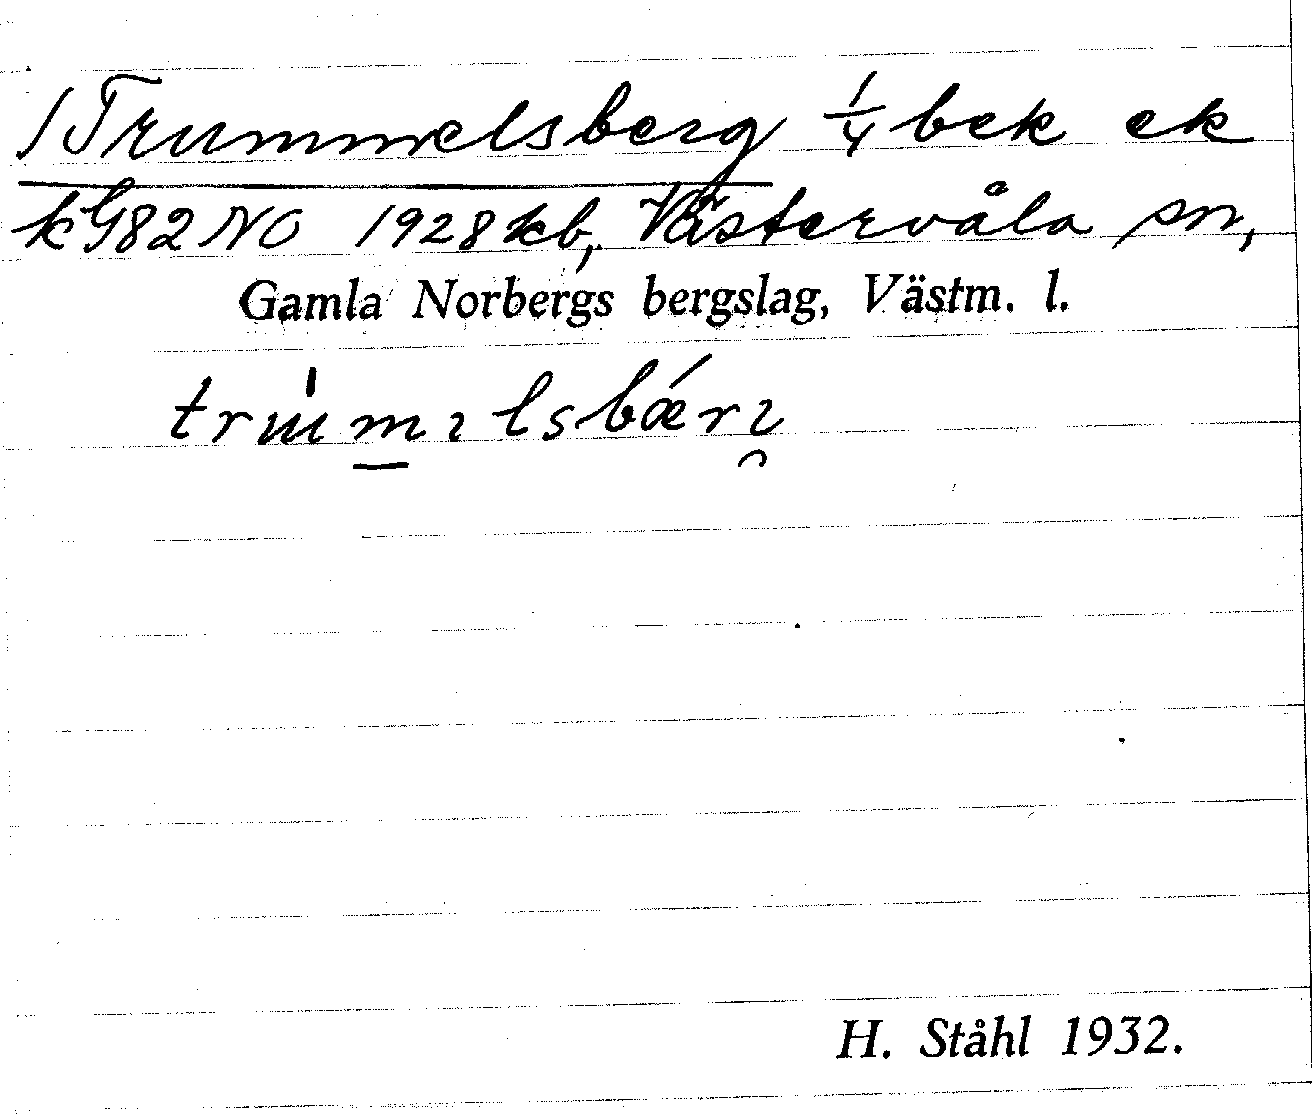 / Trummelsberg 1/4 bek ek
kG82 NO 1928 kb, Västervåla sn,
Gamla Norbergs bergslag, Västm. l.
trɯ́mɩlsbǽrɩ̯
H. Ståhl 1932.